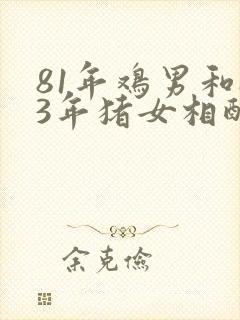 81年鸡男和
3年猪女相配
余克俭